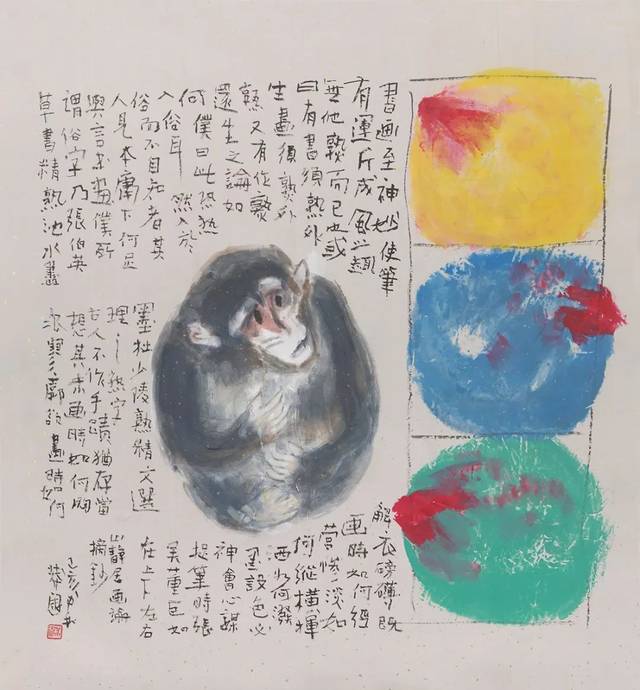 書画至神妙使筆
有運斤成風之趣
無他熟而已也或
曰有書須熟外
生畫須熟外
熟又有作熟
還生之論如
何僕曰此恐熟
入俗耳 然入於
俗而不自知者其
人見本庸下何足
與言書畫僕所
謂俗字乃張伯英
草書精熟池水盡
墨杜少陵熟精文選
理之熟字
古人不作手蹟猶存當
想其未画時如何胸
次寥廓欲畫時如何
解衣磅礴既
画時如何經
營慘淡如
何縱橫揮
洒如何潑
墨設色必
神會心謀
捉筆時張
吴董巨如
在上下左右
山靜居画論
摘鈔